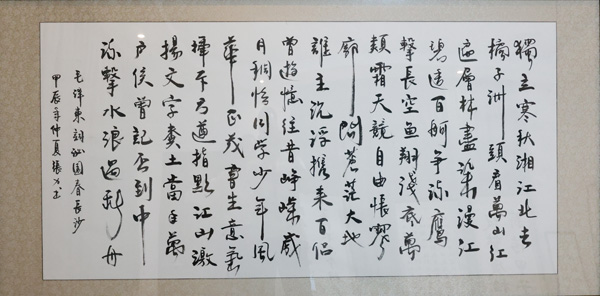 獨立寒秋湘江北去
橘子洲頭看萬山红
遍層林盡染漫江
碧透百舸争流鷹
擊長空鱼翔淺底萬
類霜天競自由悵寥
廓問蒼茫大地
誰主沉浮携来百侣
曾遊憶往昔崢嶸歲
月稠恰同学少年風
華正茂書生意氣
揮斥方遒指點江山激
揚文字糞土當年萬
户侯曾記否到中
流擊水浪遏飛舟
毛泽東詞沁园春長沙
甲辰年仲夏張书